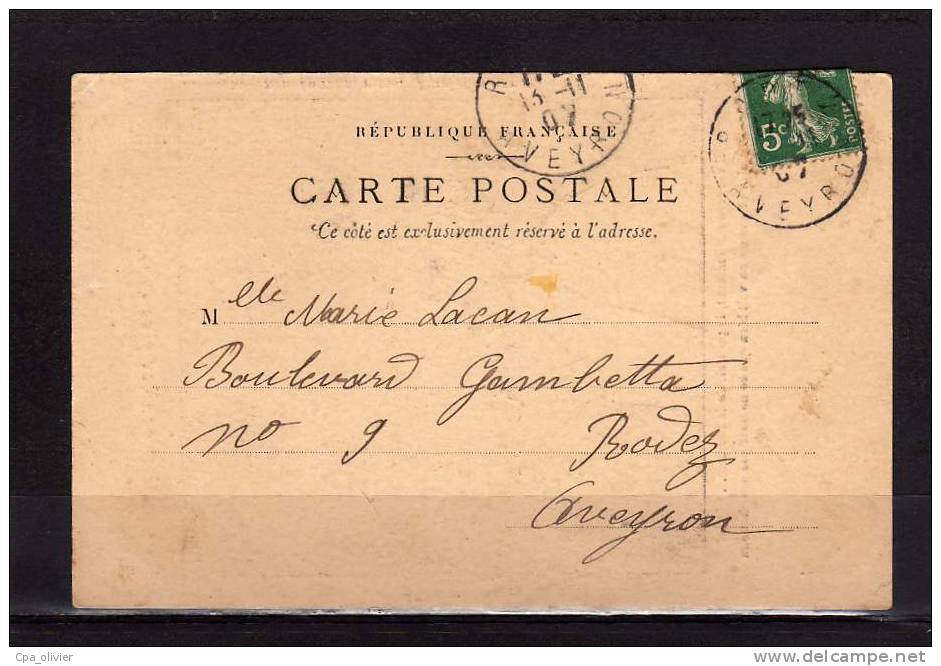 13 -11
07
AVEYRON
5c
POSTES
07
AVEYRO
RÉPUBLIQUE FRANÇAISE
CARTE POSTALE
Ce côté est exclusivement réservé à l'adresse.
Mlle Marie Lacan
Boulevard Gambetta
no 9 Rodez
Aveyron
Cpa_olivier
delcampe.net